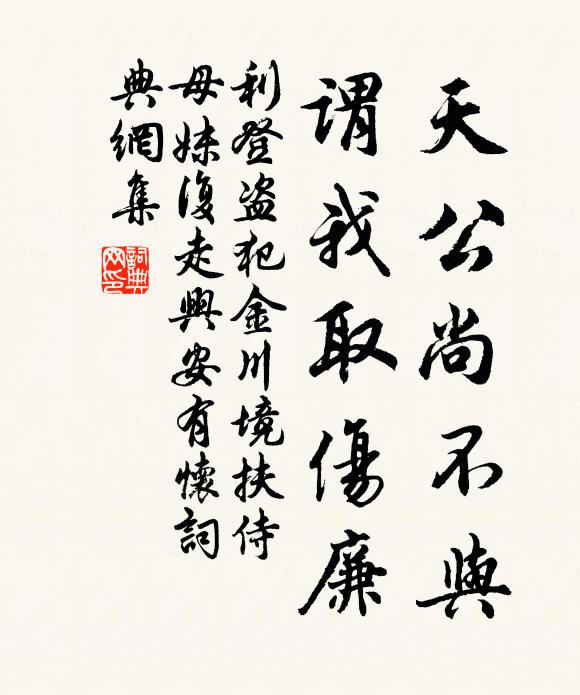 天公尚不與
謂我取傷廉
利登盜犯金川境扶侍
母妹復走興安有懷詞
典網集
詞典
网印